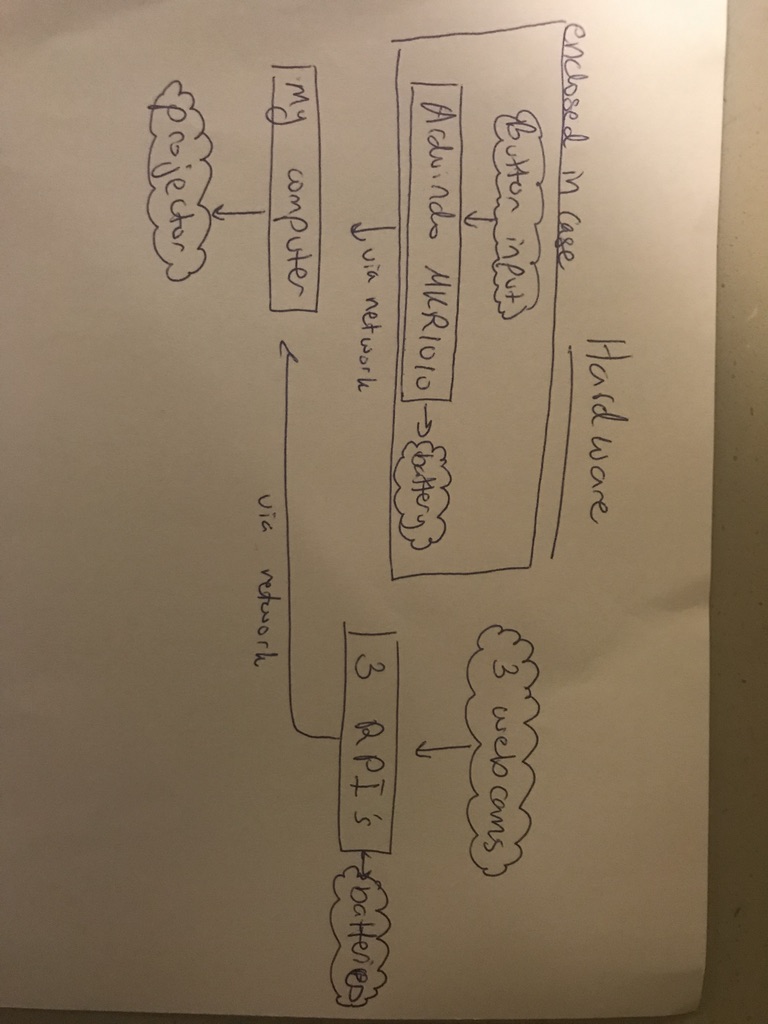 Hardware
enclosed in case
Button input
Aduindo MKR1010
battery
via network
My computer
projector
3 webcams
3 RPI's
batteries
via network